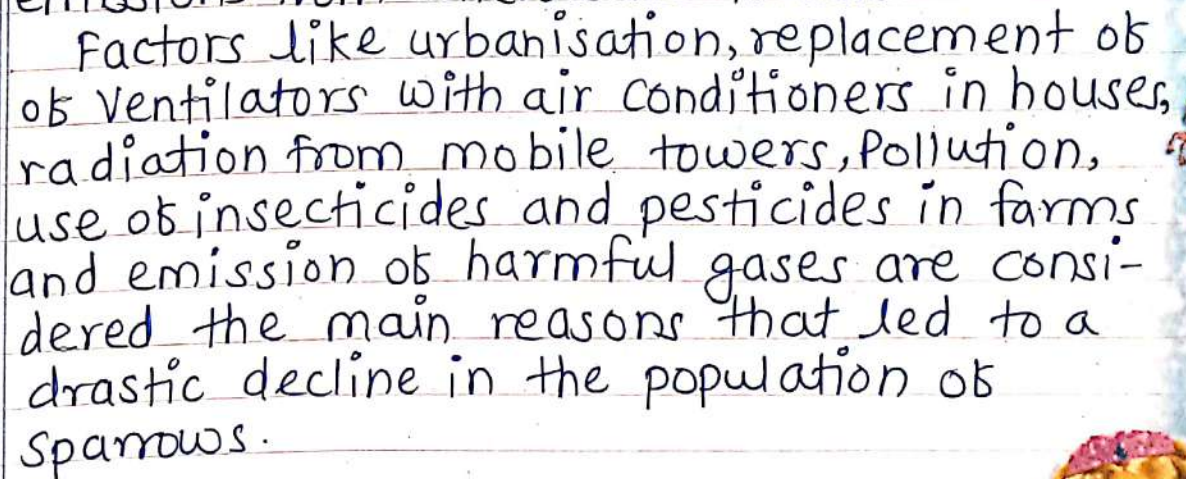 Factors like urbanisation, replacement of
of Ventilators with air conditioners in houses,
radiation from mobile towers, Pollution,
use of insecticides and pesticides in farms
and emission of harmful gases are consi-
dered the main reasons that led to a
drastic decline in the population of
Sparrows.